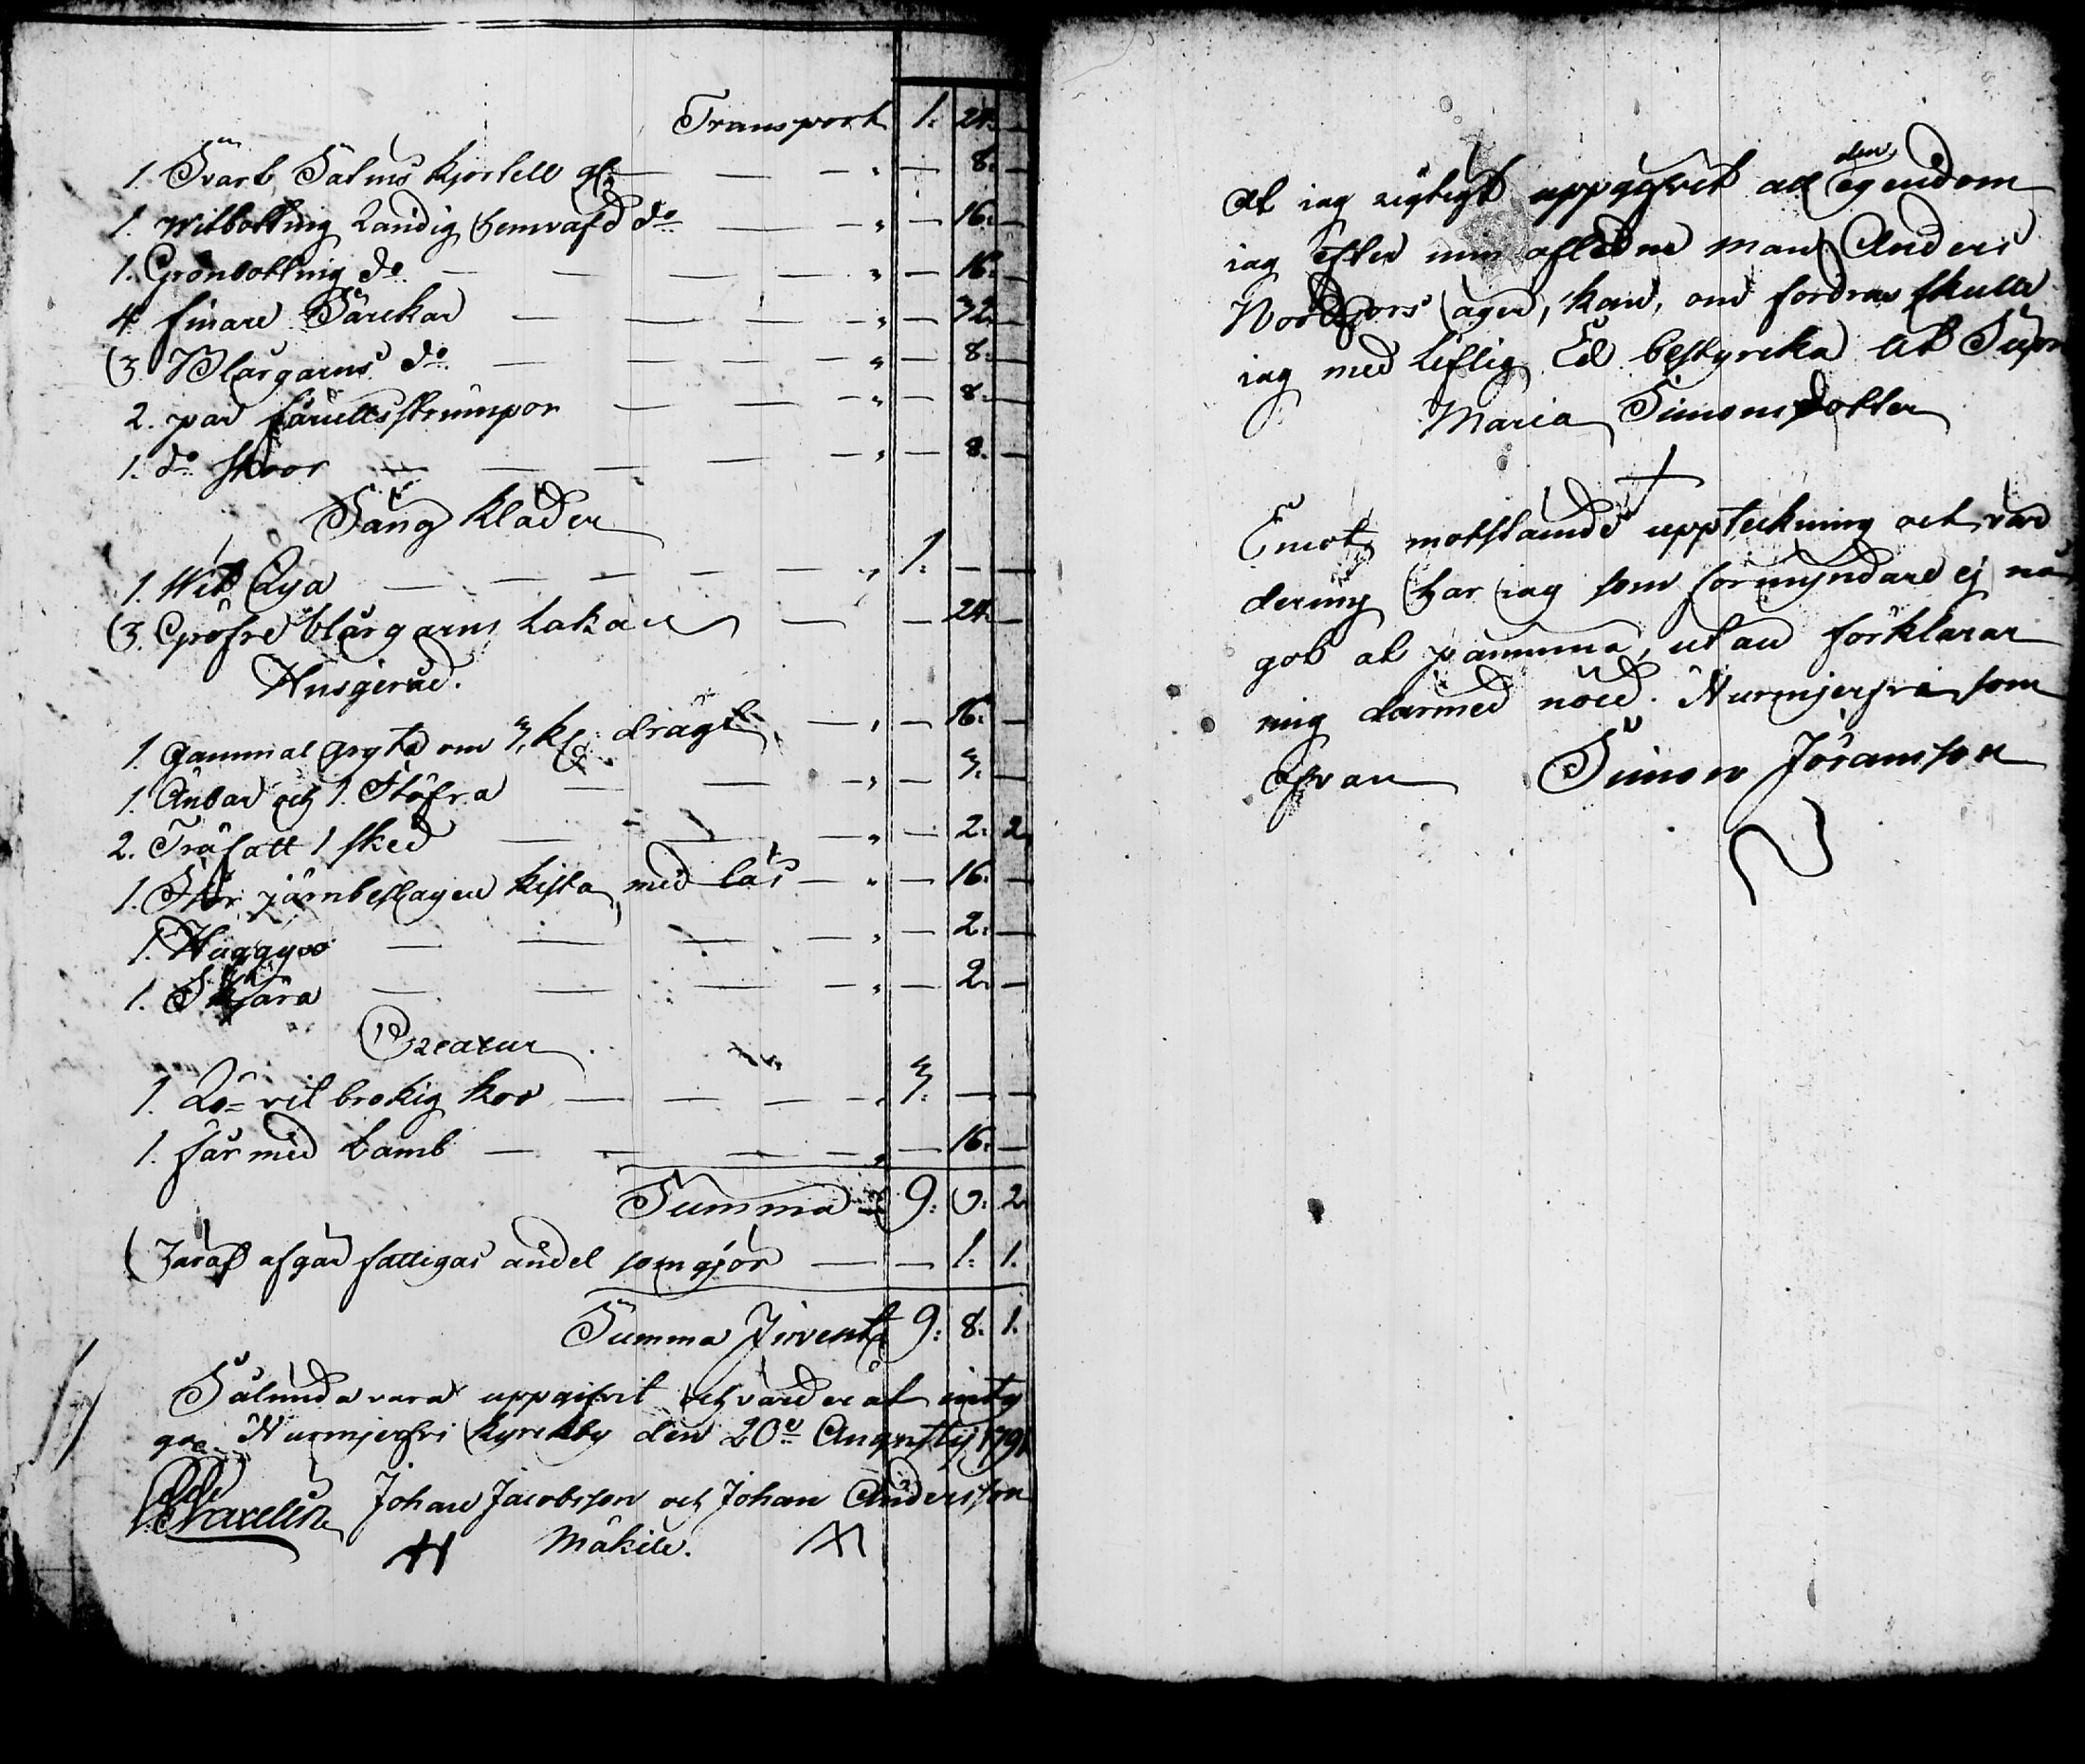 Transport 1: 24. —
1. Svart Salms kjortell gl: — 8. —
1. Witbottnig Randig hemväfd do — 16. —
1. Grönbottnig do — 16. —
4 finare Särckar — 32. —
3. Blårgarns do — 8. —
2. par färulls strümpor — 8. —
1. do skoor — 8. —
Säng kläder
1. Wit Rya 1. — —
3. Gröfre blårgarns Lakan — 24. —
Husgeråd.
1. gammal gryta om 3. drägt — 16. —
1. Ämbar och 1. Stöfra — 3. —
2. Träfatt 1 sked — 2. 2.
1. Stör järnbeslagen kista med lås — 16. —
1. Huggyxo — 2. —
1. Skjära — 2. —
Creatur
1. Rö= vit brokig koo 3. — —
1. får med Lamb — 16. —
Summa 9: 9: 2.
Häraf afgår fattigas andel som gjör — 1: 1.
Summa Jnvent: 9: 8: 1.
Sålunda vara uppgifvit och värderat intÿ
gar Nurmjerfvi kyrckby den 20e Augustij 1791
Johan Jacobsson och Johan Andersson
Mäkile.
At iag rigtigt uppgifvit all den egendom
iag efter min aflidne man Anders
Nordfors äger, kan, om fordras skulle
iag med Liflig Ed bestyrcka ut Supra
Maria Simonsdotter
Emot motstående uppteckning och vär
dering har iag som förmyndare ej nå
got at påminna, utan förklarar
mig därmed nöid. Nurmjerfvi som
ofvan Simon Jöransson